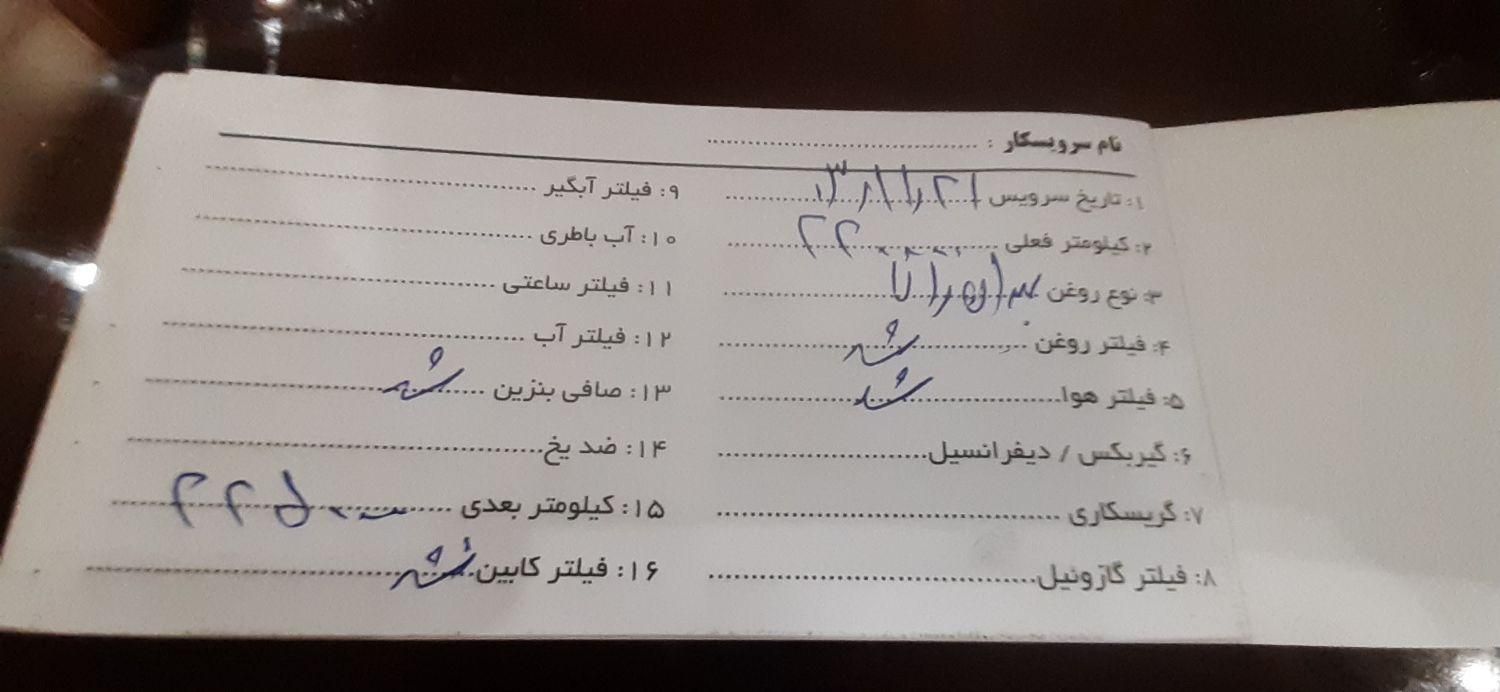 نام سرویسکار :
۱: تاریخ سرویس
۲: کیلومتر فعلی
۳: نوع روغن
۴: فیلتر روغن شد
۵: فیلتر هوا شد
۶: گیربکس / دیفرانسیل
۷: گریسکاری
۸: فیلتر گازوئیل
۹: فیلتر آبگیر
۱۰: آب باطری
۱۱: فیلتر ساعتی
۱۲: فیلتر آب
۱۳: صافی بنزین شد
۱۴: ضد یخ
۱۵: کیلومتر بعدی
۱۶: فیلتر کابین شد